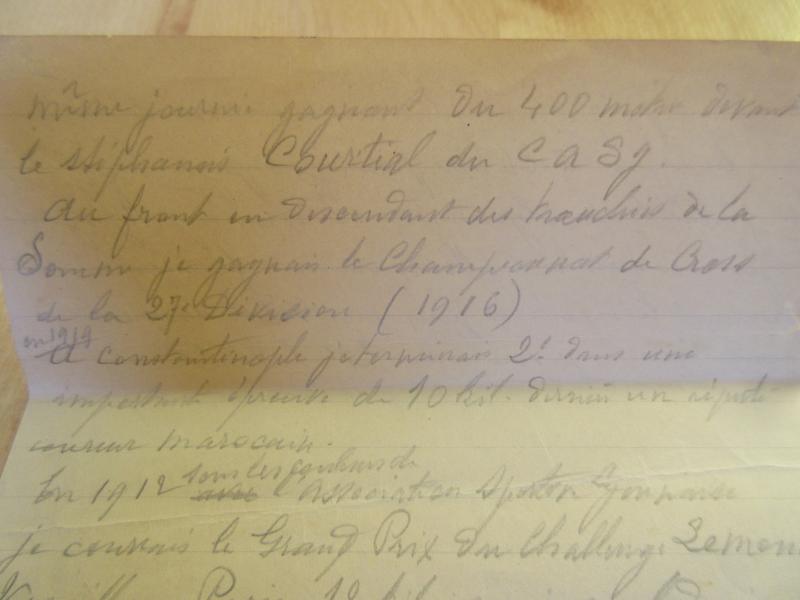 même journée gagnant du 400 mètre devant
le stéphanois Courtial du C a S g.
du front en descendant des tranchées de la
Somme je gagnais le Championnat de Cross
de la 27e Division (1916)
en 1919
a constantinople je terminais 2e dans une
importante épreuve de 10 kil. derrière un réputé
coureur marocain.
sous les couleurs de
En 1912 avec l'association Sportive Lyonnaise
je courais le Grand Prix du Challenge Lemon
Paris